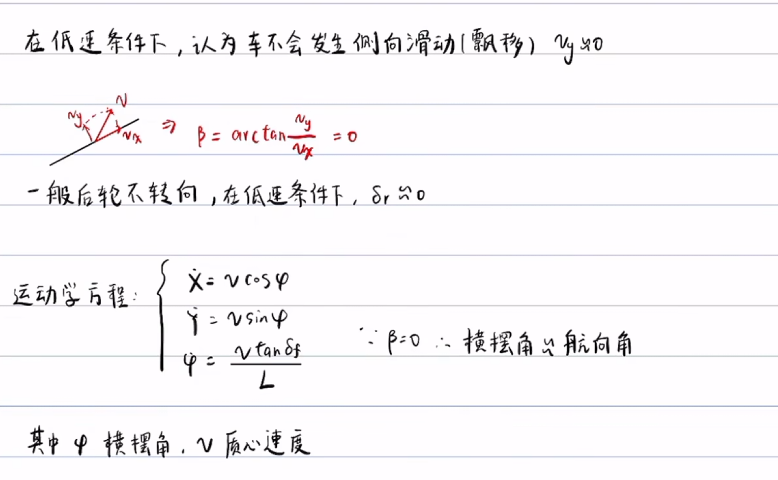 在低速条件下,认为车不会发生侧向滑动(飘移) vy≈0
vy v vx ⇒ β = arctan vy/vx = 0
一般后轮不转向,在低速条件下, δr≈0
运动学方程:
Ẋ = v cosφ
Ẏ = v sinφ
φ̇ = v tanδf / L
∵ β=0 ∴ 横摆角≈航向角
其中 φ 横摆角, v 质心速度